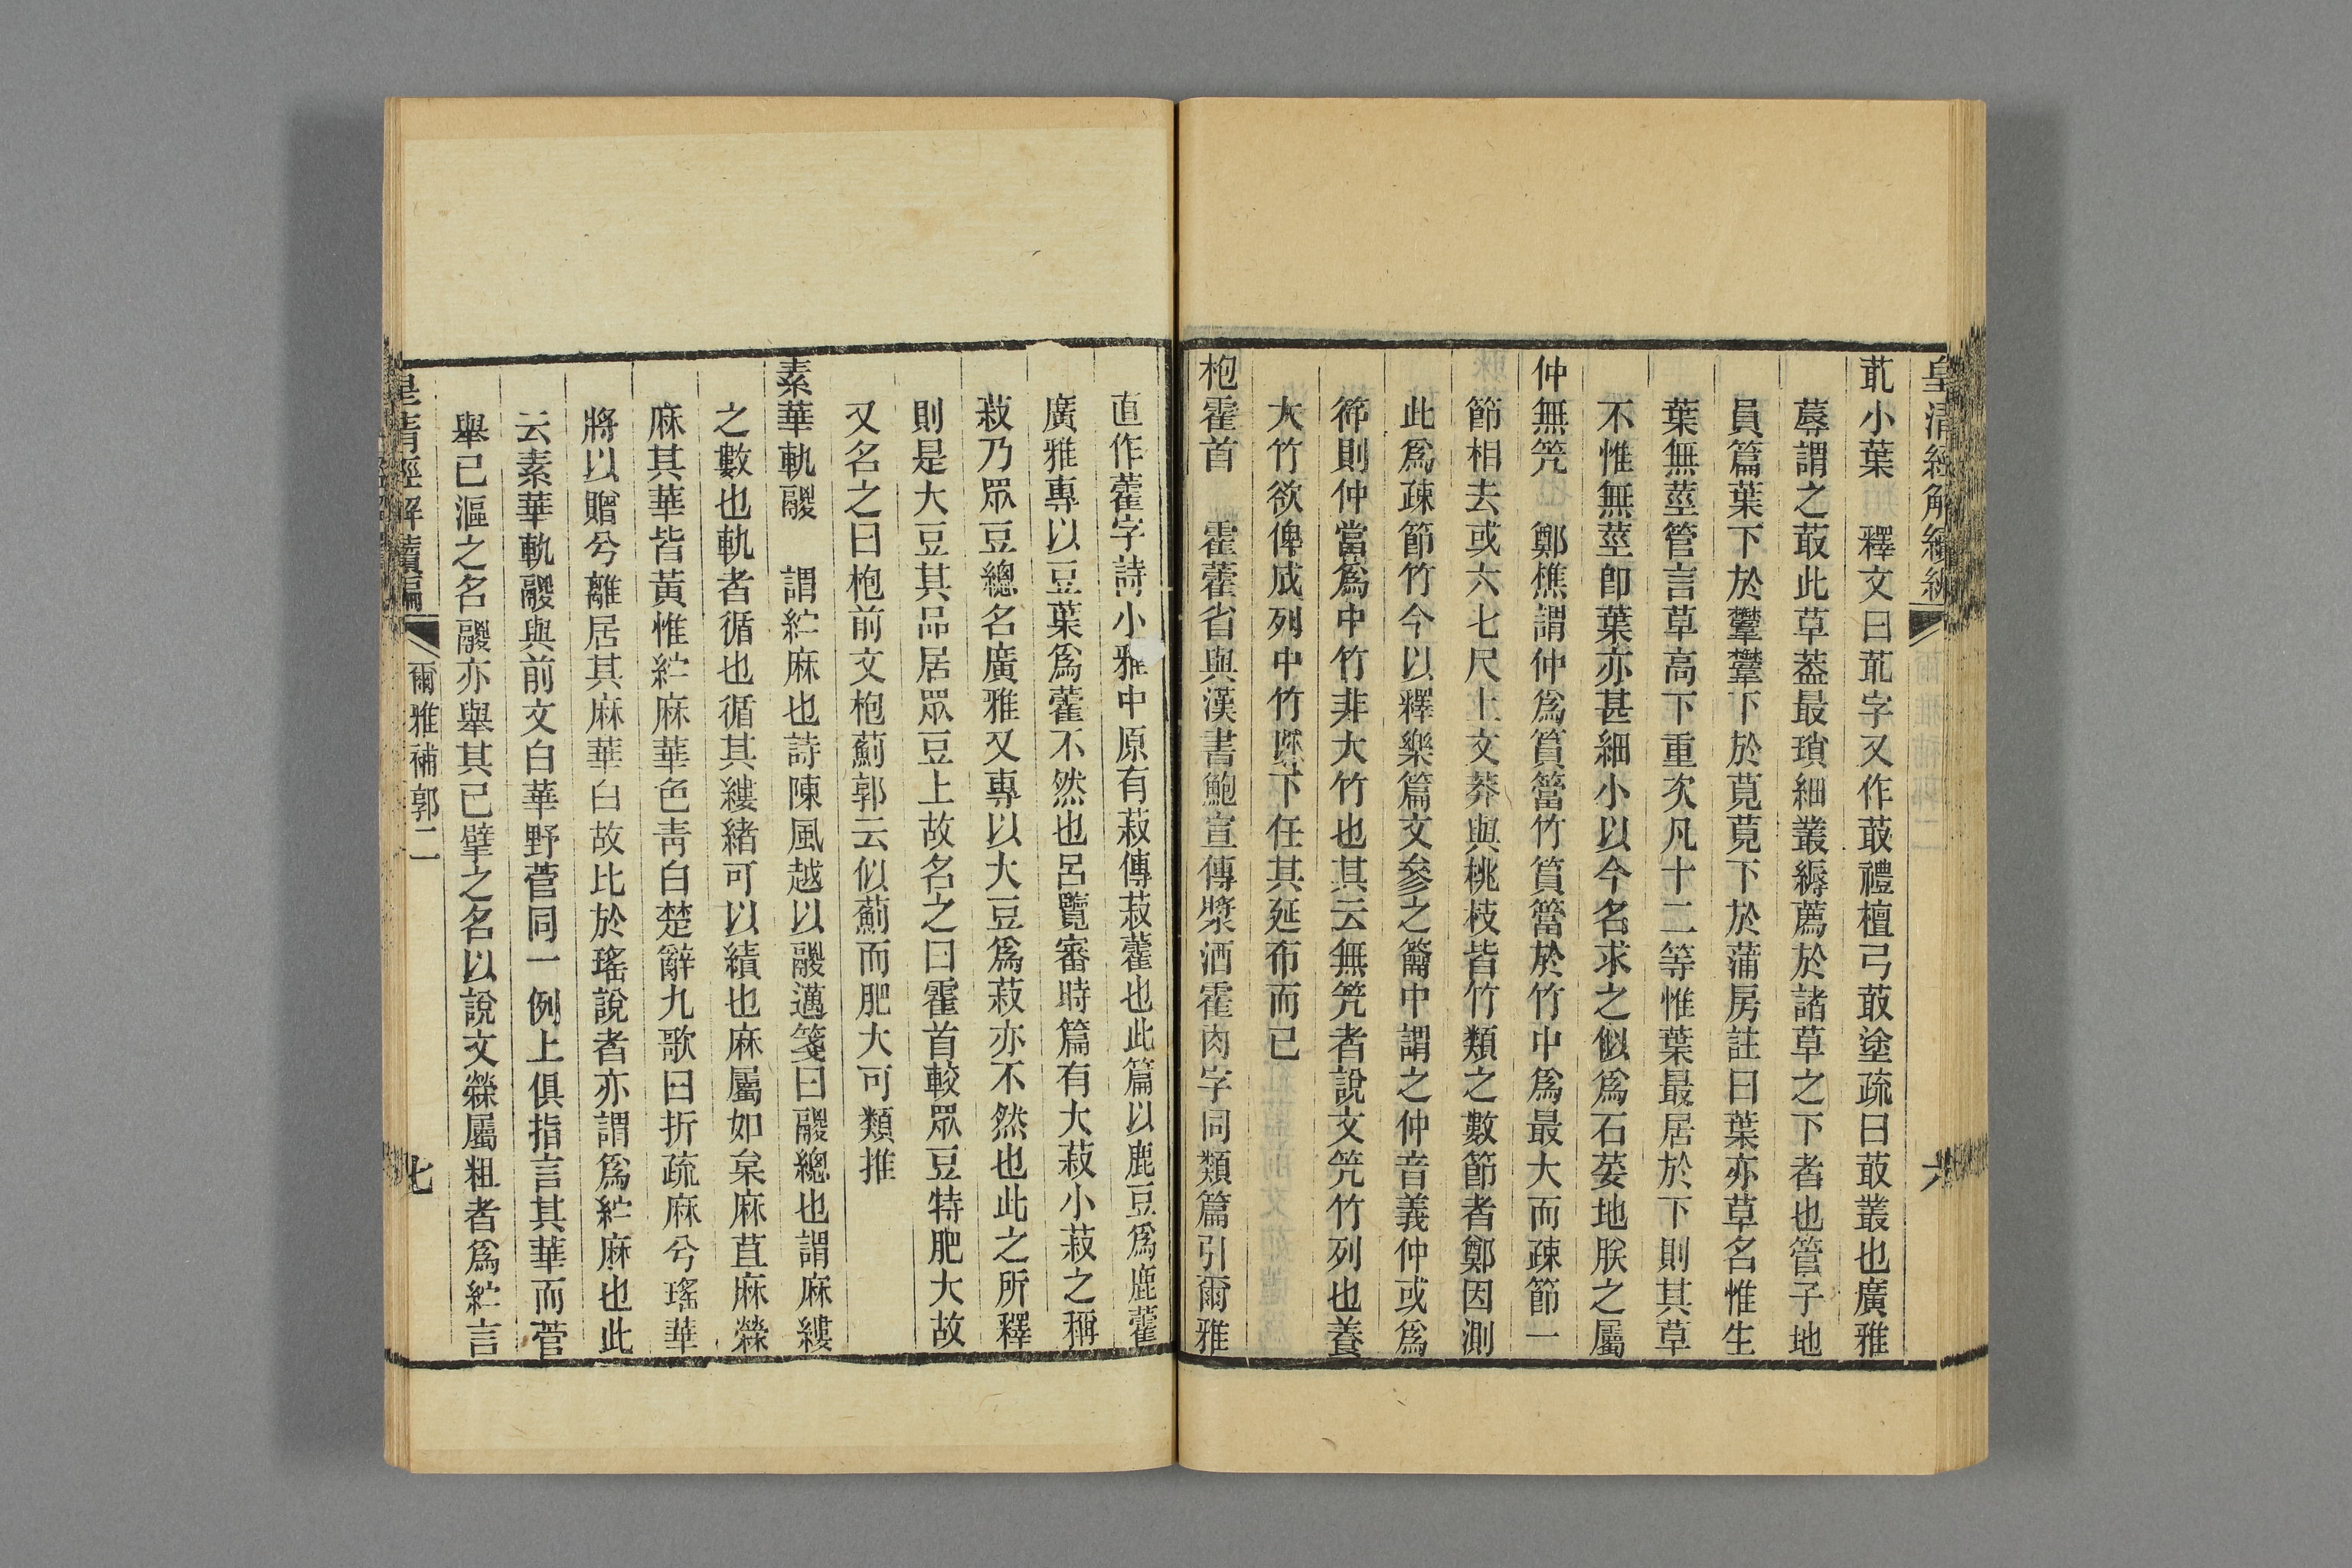 皇清經解續編
六
菆小葉　釋文曰菆字又作菆禮檀弓菆塗疏曰菆叢也廣雅
蓐謂之菆此草葢最瑣細叢縟薦於諸草之下者也管子地
員篇葉下於虆虆下於莧莧下於蒲房註曰葉亦草名惟生
葉無莖管言草高下重次凡十二等惟葉最居於下則其草
不惟無莖卽葉亦甚細小以今名求之似爲石荽地朕之屬
仲無笐　鄭樵謂仲爲篔簹竹篔簹於竹中爲最大而疎節一
節相去或六七尺上文莽與桃枝皆竹類之數節者鄭因測
此爲疎節竹今以釋樂篇文參之籥中謂之仲音義仲或爲
筗則仲當爲中竹非大竹也其云無笐者說文笐竹列也養
大竹欲俾成列中竹以下任其延布而已
枹霍首　霍藿省與漢書鮑宣傳漿酒霍肉字同類篇引爾雅
直作藿字詩小雅中原有菽傳菽藿也此篇以鹿豆爲鹿藿
廣雅專以豆葉爲藿不然也呂覽審時篇有大菽小菽之稱
菽乃眾豆總名廣雅又專以大豆爲菽亦不然也此之所釋
則是大豆其品居眾豆上故名之曰霍首較眾豆特肥大故
又名之曰枹前文枹薊郭云似薊而肥大可類推
素華軌鬷　謂紵麻也詩陳風越以鬷邁箋曰鬷總也謂麻縷
之數也軌者循也循其縷緒可以績也麻屬如枲麻苴麻檾
麻其華皆黃惟紵麻華色靑白楚辭九歌曰折疏麻兮瑤華
將以贈兮離居其麻華白故比於瑤說者亦謂爲紵麻也此
云素華軌鬷與前文白華野菅同一例上俱指言其華而菅
舉已漚之名鬷亦舉其已擘之名以說文檾屬粗者爲紵言
皇清經解續編
爾雅補郭二
七